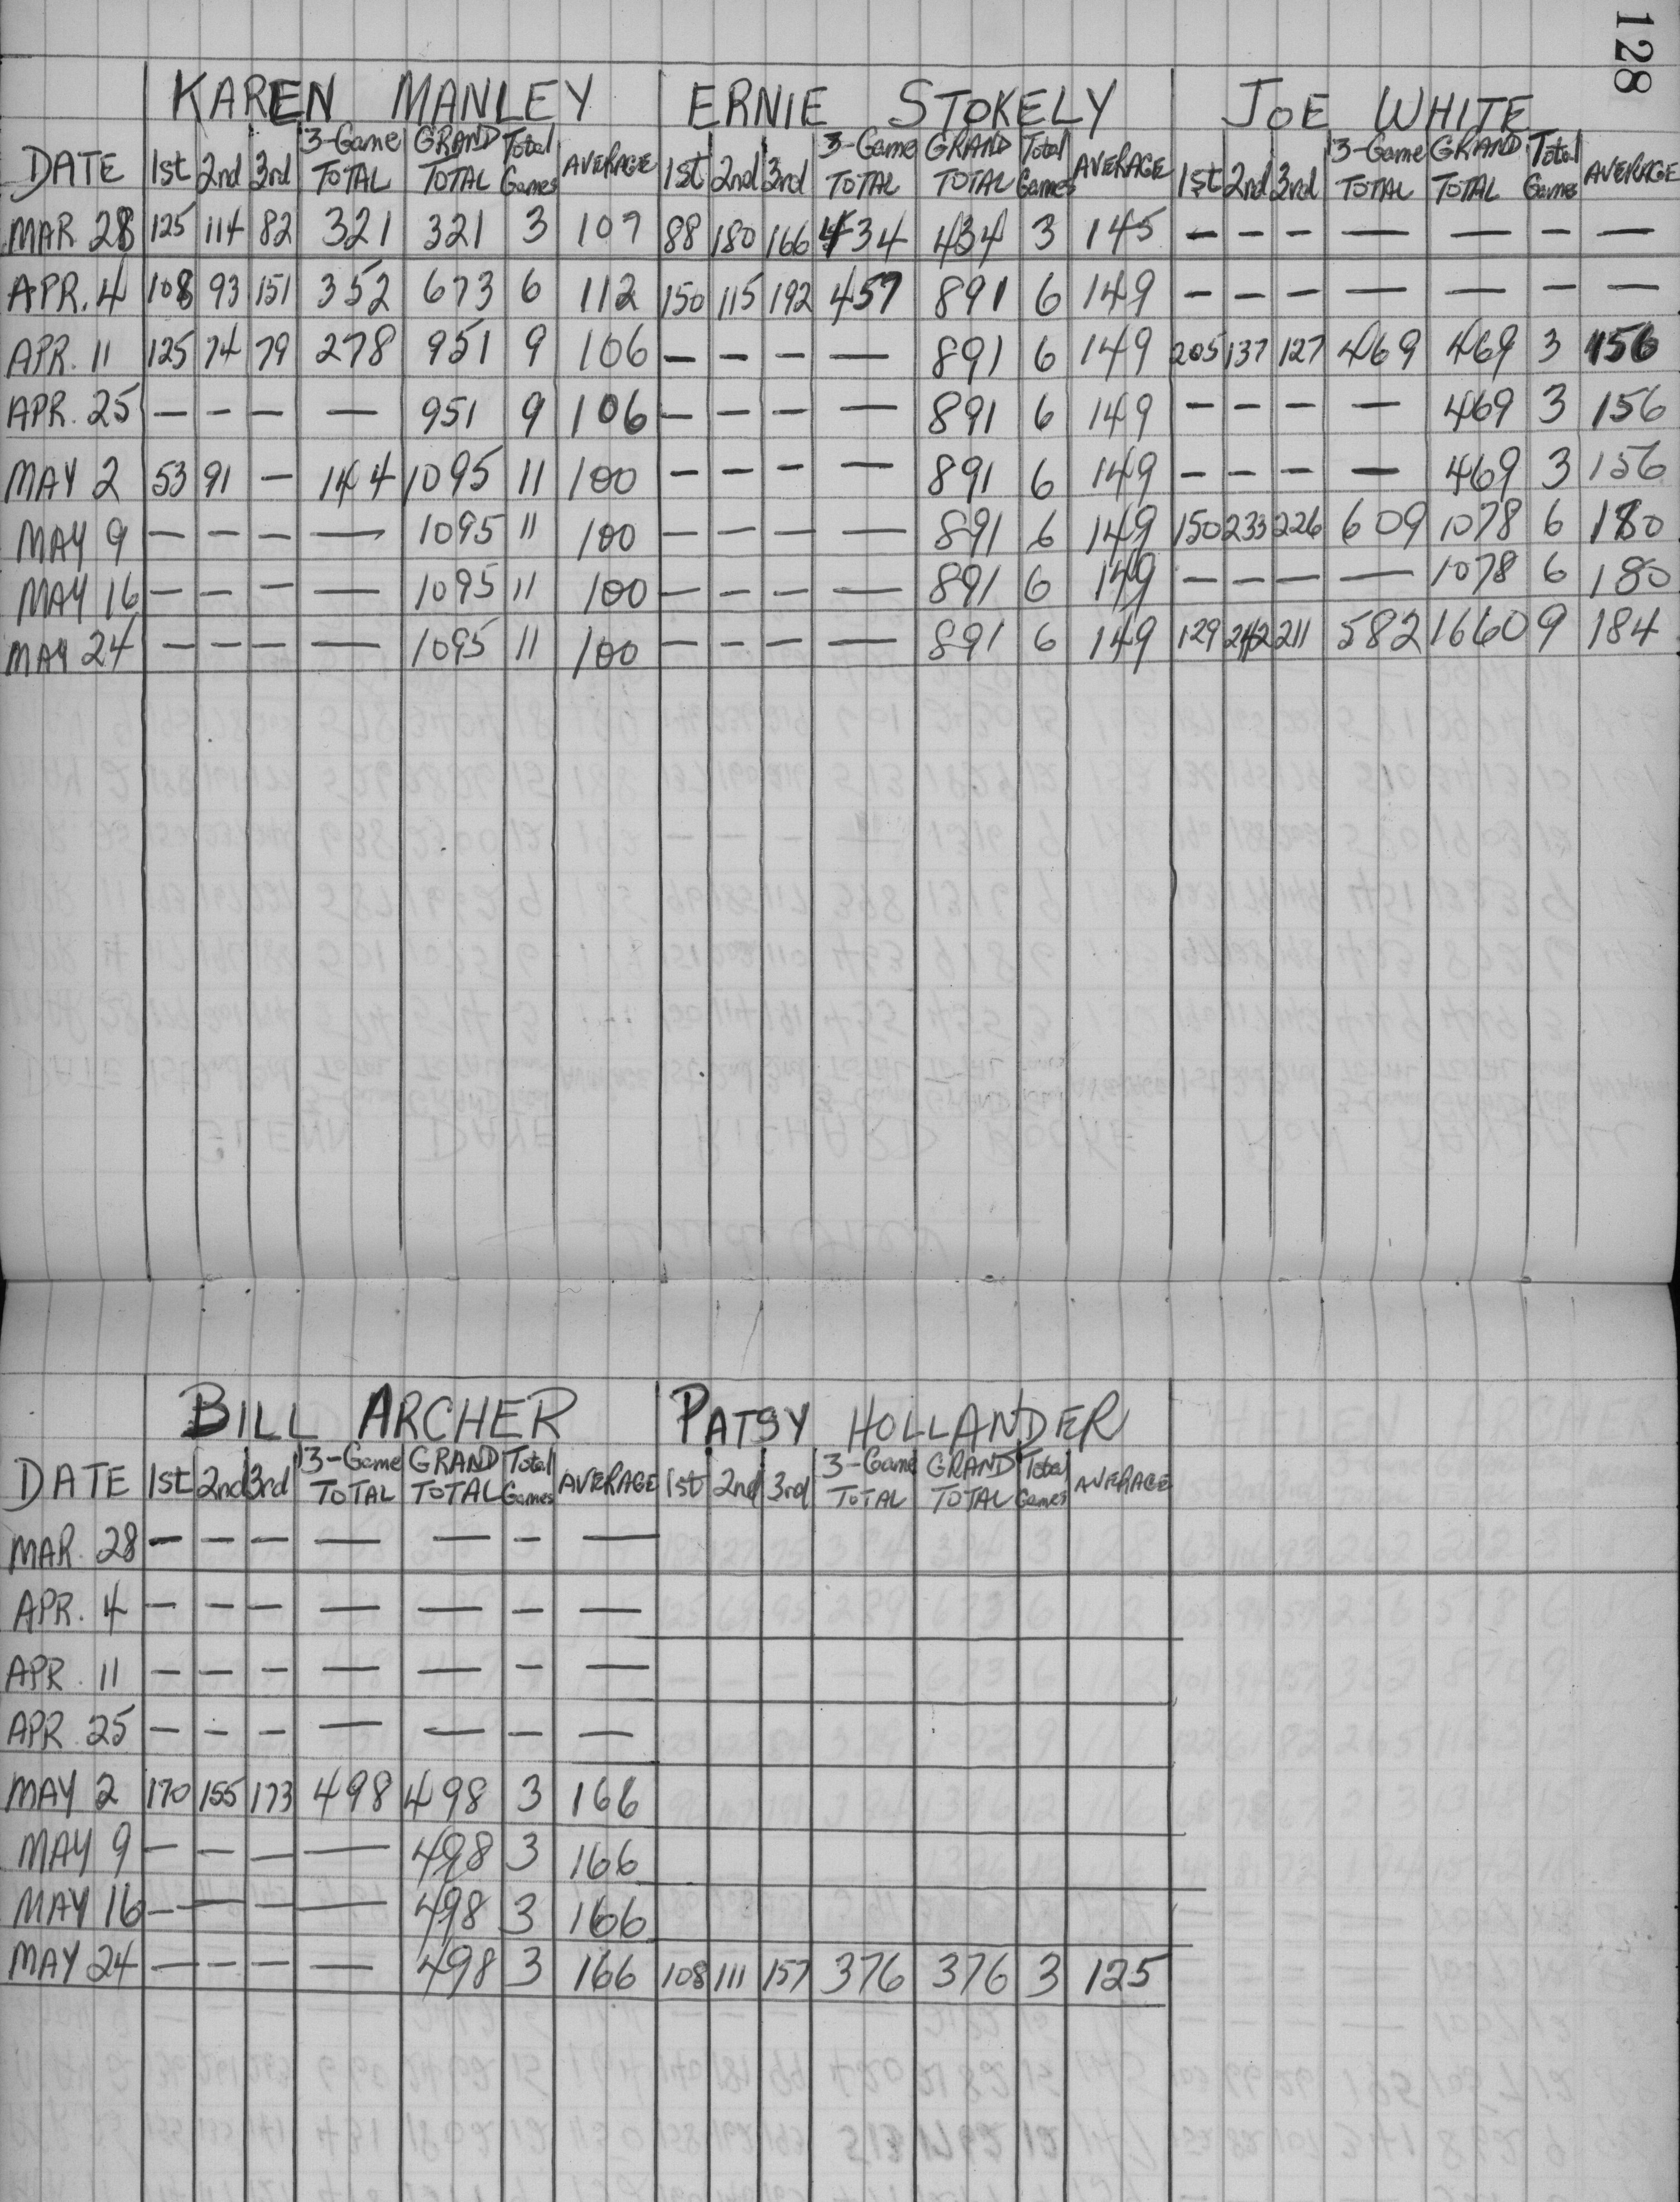 128
KAREN MANLEY ERNIE STOKELY JOE WHITE
DATE 1st 2nd 3rd 3-Game TOTAL GRAND TOTAL Total Games AVERAGE 1st 2nd 3rd 3-Game TOTAL GRAND TOTAL Total Games AVERAGE 1st 2nd 3rd 3-Game TOTAL GRAND TOTAL Total Games AVERAGE
MAR 28 125 114 82 321 321 3 107 88 180 166 434 434 3 145 - - - - - - -
APR. 4 108 93 151 352 673 6 112 150 115 192 457 891 6 149 - - - - - - -
APR. 11 125 74 79 278 951 9 106 - - - - 891 6 149 205 137 127 469 469 3 156
APR. 25 - - - - 951 9 106 - - - - 891 6 149 - - - - 469 3 156
MAY 2 53 91 - 144 1095 11 100 - - - - 891 6 149 - - - - 469 3 156
MAY 9 - - - - 1095 11 100 - - - - 891 6 149 150 233 226 609 1078 6 180
MAY 16 - - - - 1095 11 100 - - - - 891 6 149 - - - - 1078 6 180
MAY 24 - - - - 1095 11 100 - - - - 891 6 149 129 242 211 582 1660 9 184
BILL ARCHER PATSY HOLLANDER
DATE 1st 2nd 3rd 3-Game TOTAL GRAND TOTAL Total Games AVERAGE 1st 2nd 3rd 3-Game TOTAL GRAND TOTAL Total Games AVERAGE
MAR. 28 - - - - - - -
APR. 4 - - - - - - -
APR. 11 - - - - - - -
APR. 25 - - - - - - -
MAY 2 170 155 173 498 498 3 166
MAY 9 - - - - 498 3 166
MAY 16 - - - - 498 3 166
MAY 24 - - - - 498 3 166 108 111 157 376 376 3 125